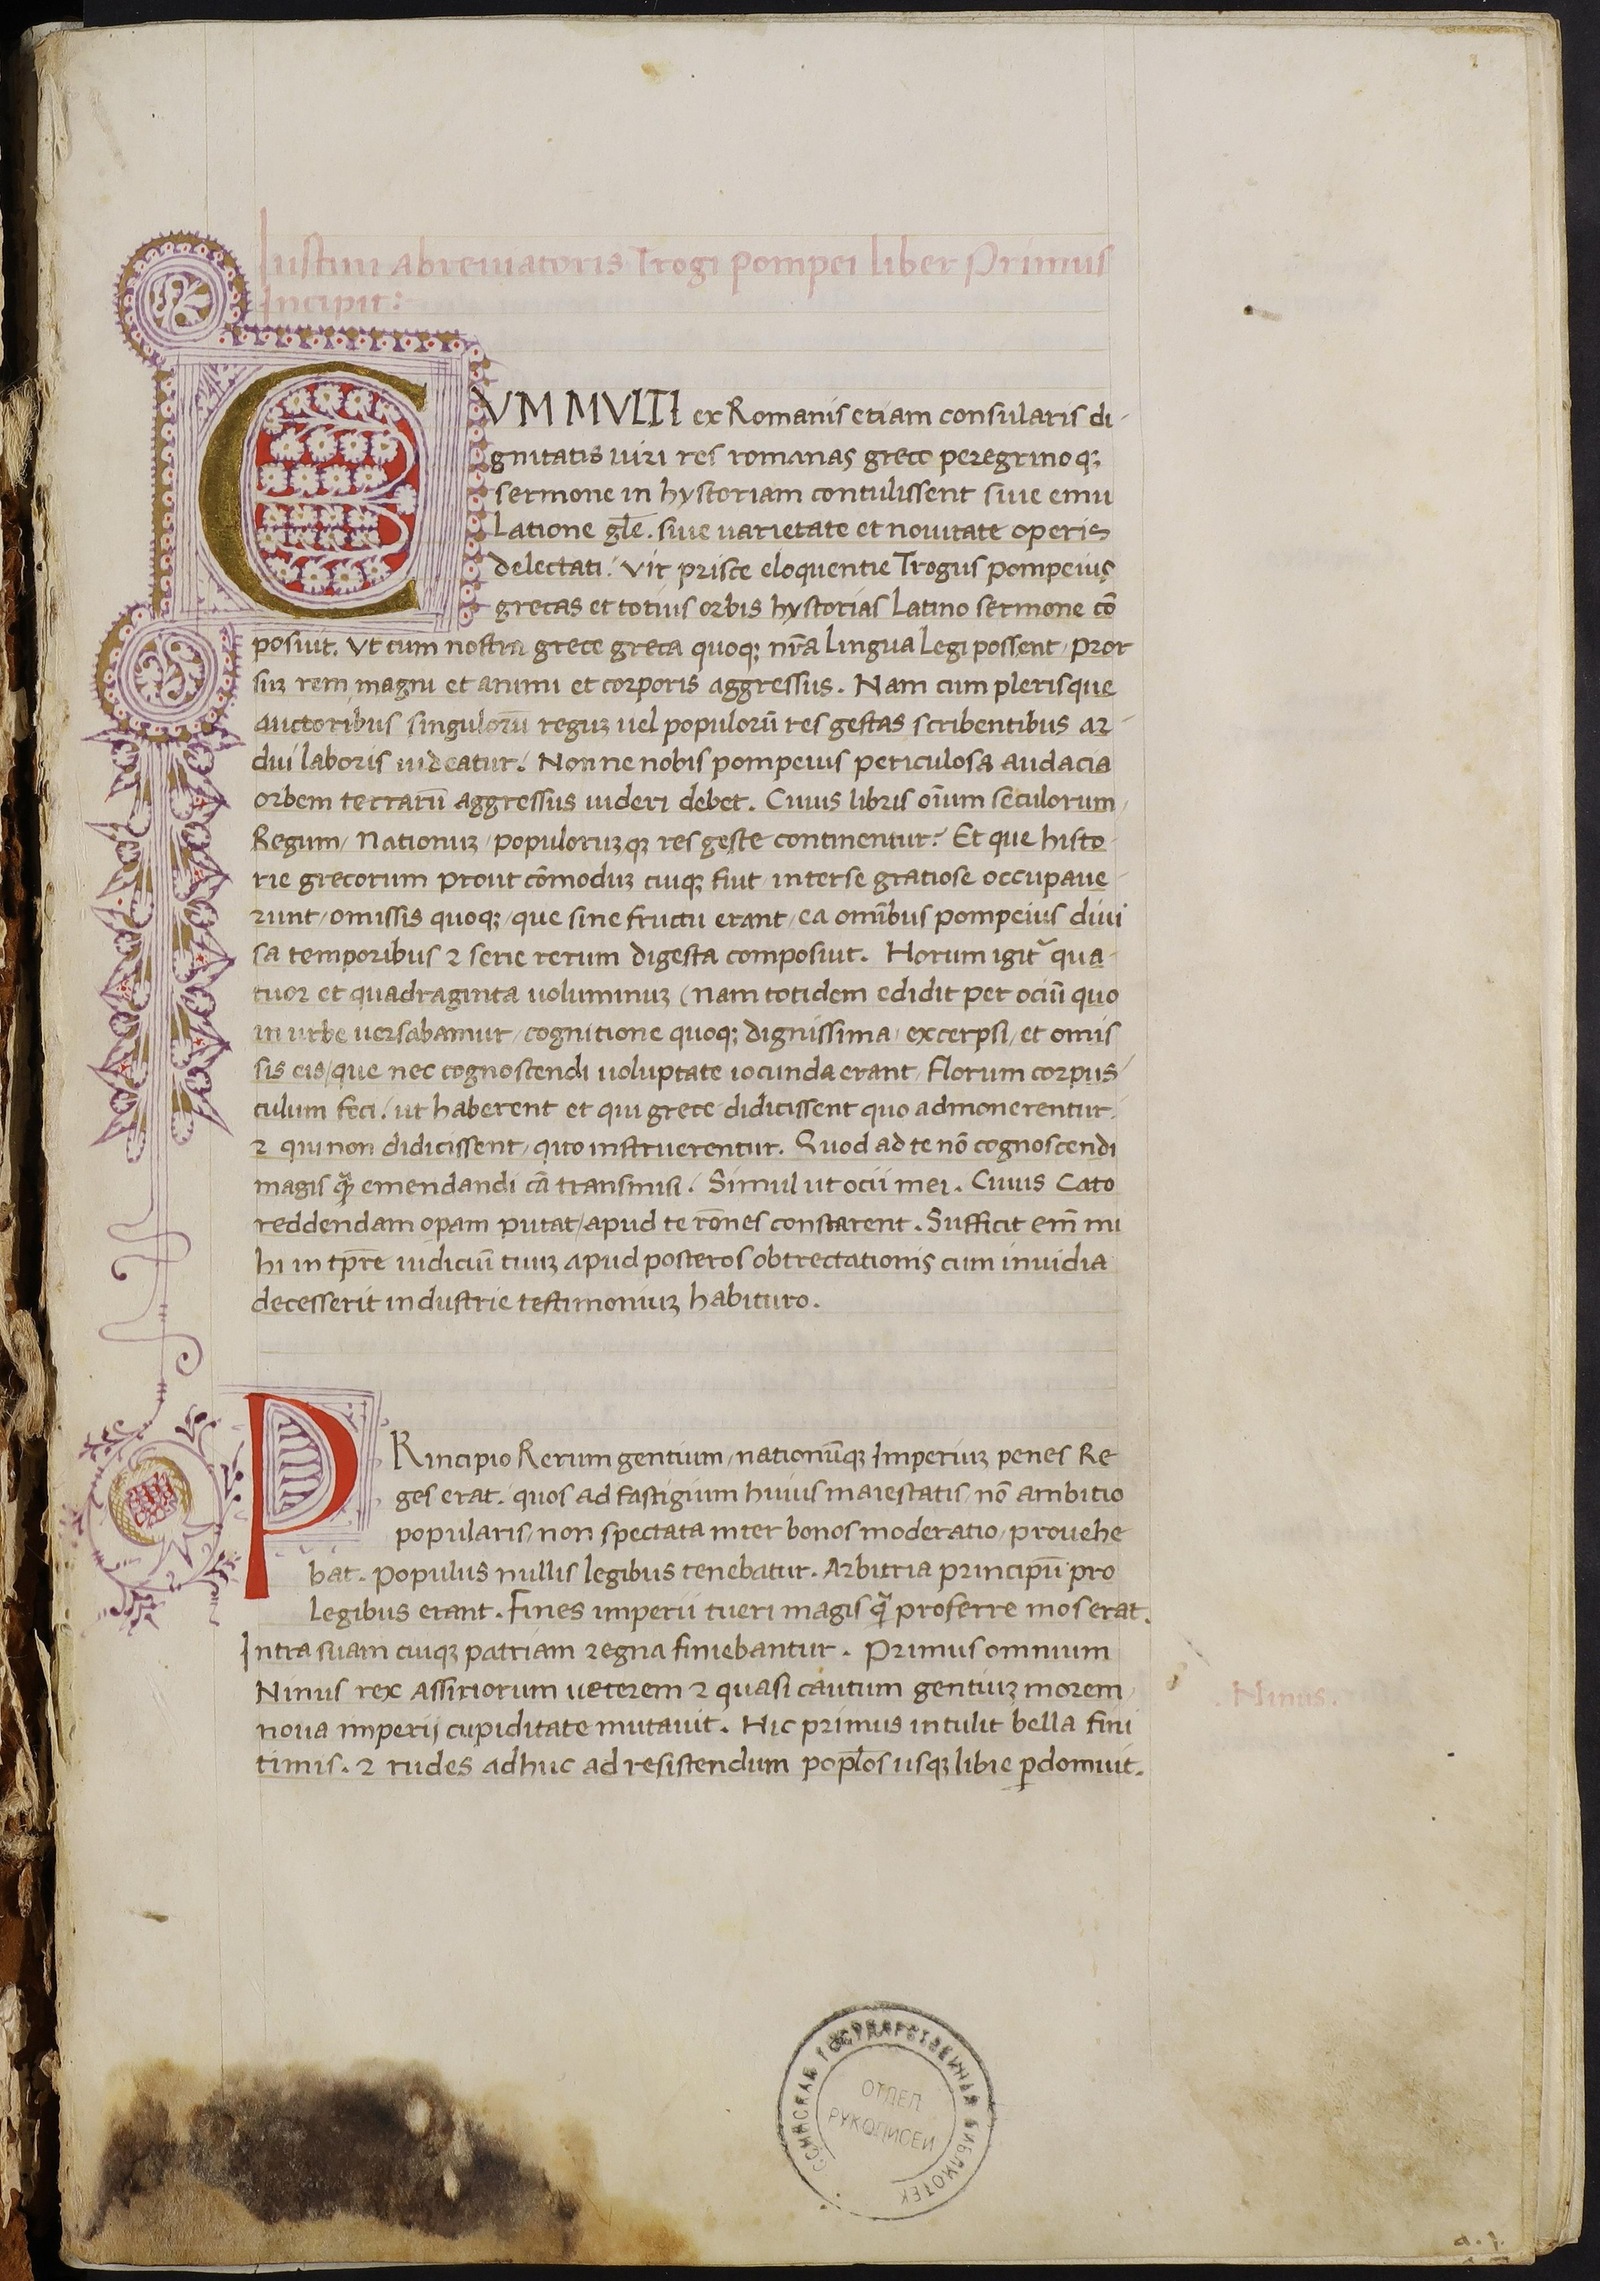 Iustini abreviatoris Trogi pompei liber Primus
Incipit:
CVM MVLTI ex Romanis etiam consularis di-
gnitatis uiri res romanas grece peregrino qꝫ
sermone in hystoriam contulissent siue emu
Latione gl̄e. siue uarietate et nouitate operis
delectati. Vir prisce eloquentie Trogus pompeius
grecas et totius orbis hystorias Latino sermone cō
posiut. Vt cum nostra grece greca quoqꝫ nr̄a Lingua Legi possent / pror
suꝫ rem magni et animi et corporis aggressus. Nam cum plerisque
auctoribus singulorū reguꝫ uel populorū res gestas scribentibus ar-
dui laboris uideatur. Nonne nobis pompeius periculosa audacia
orbem terrarū aggressus uideri debet. Cuius libris oīum seculorum /
Regum / Nationuꝫ / populoruꝫqꝫ res geste continentur: Et que histo-
rie grecorum prout cōmoduꝫ cuiqꝫ fiut inter se gratiose occupaue-
runt / omissis quoqꝫ / que sine fructu erant / ea omībus pompeius diui
sa temporibus ⁊ serie rerum digesta composiut. Horum igit̄ qua-
tuor et quadraginta uoluminuꝫ (nam totidem edidit per ociū quo
in urbe uersabamur / cognitione quoqꝫ dignissima excerpsi / et omis
sis eis / que nec cognoscendi uoluptate iocunda erant / florum corpus
culum feci. ut haberent et qui grece didicissent quo admonerentur.
⁊ qui non didicissent / quo instruerentur. Quod ad te nō cognoscendi
magis qꝫ̄ emendandi cā transmisi. Simul ut ocii mei. Cuius Cato
reddendam opam putat / apud te rōnes constarent. Sufficit em̄ mi
hi in tp̄re iudiciū tuuꝫ apud posteros obtrectationis cum inuidia
decesserit industrie testimoniuꝫ habituro.
PRincipio Rerum gentium / nationūqꝫ Imperiuꝫ penes Re
ges erat. quos ad fastigium huius maiestatis / nō ambitio
popularis / non spectata inter bonos moderatio / prouehe
bat. populus nullis legibus tenebatur. Arbitria principū pro
Legibus erant. Fines imperii tueri magis q̄ proferre mos erat.
Intra suam cuiqꝫ patriam regna finiebantur. Primus omnium
Ninus rex Assiriorum ueterem ⁊ quasi cautum gentiuꝫ morem /
noua imperij cupiditate mutauit. Hic primus intulit bella fini
timis. ⁊ rudes adhuc ad resistendum popl̄os usqꝫ libie ꝑdomuit.
. Ninus .
ССИЙСКАЯ ГОСУДАРСТВЕННАЯ БИБЛИОТЕК
ОТДЕЛ
РУКОПИСЕЙ